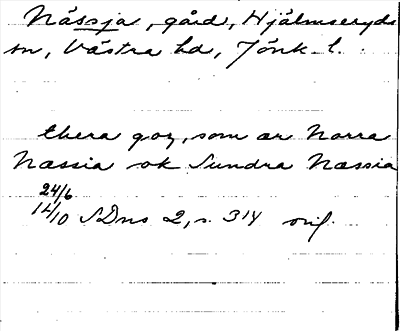 Nässja, gård, Hjälmseryds
sn, Västra hd, Jönk. l.
thera goz, som ær Norra
Næssia ok Sundra Næssia
24/6
14/10 SDns 2, s. 314 orig.